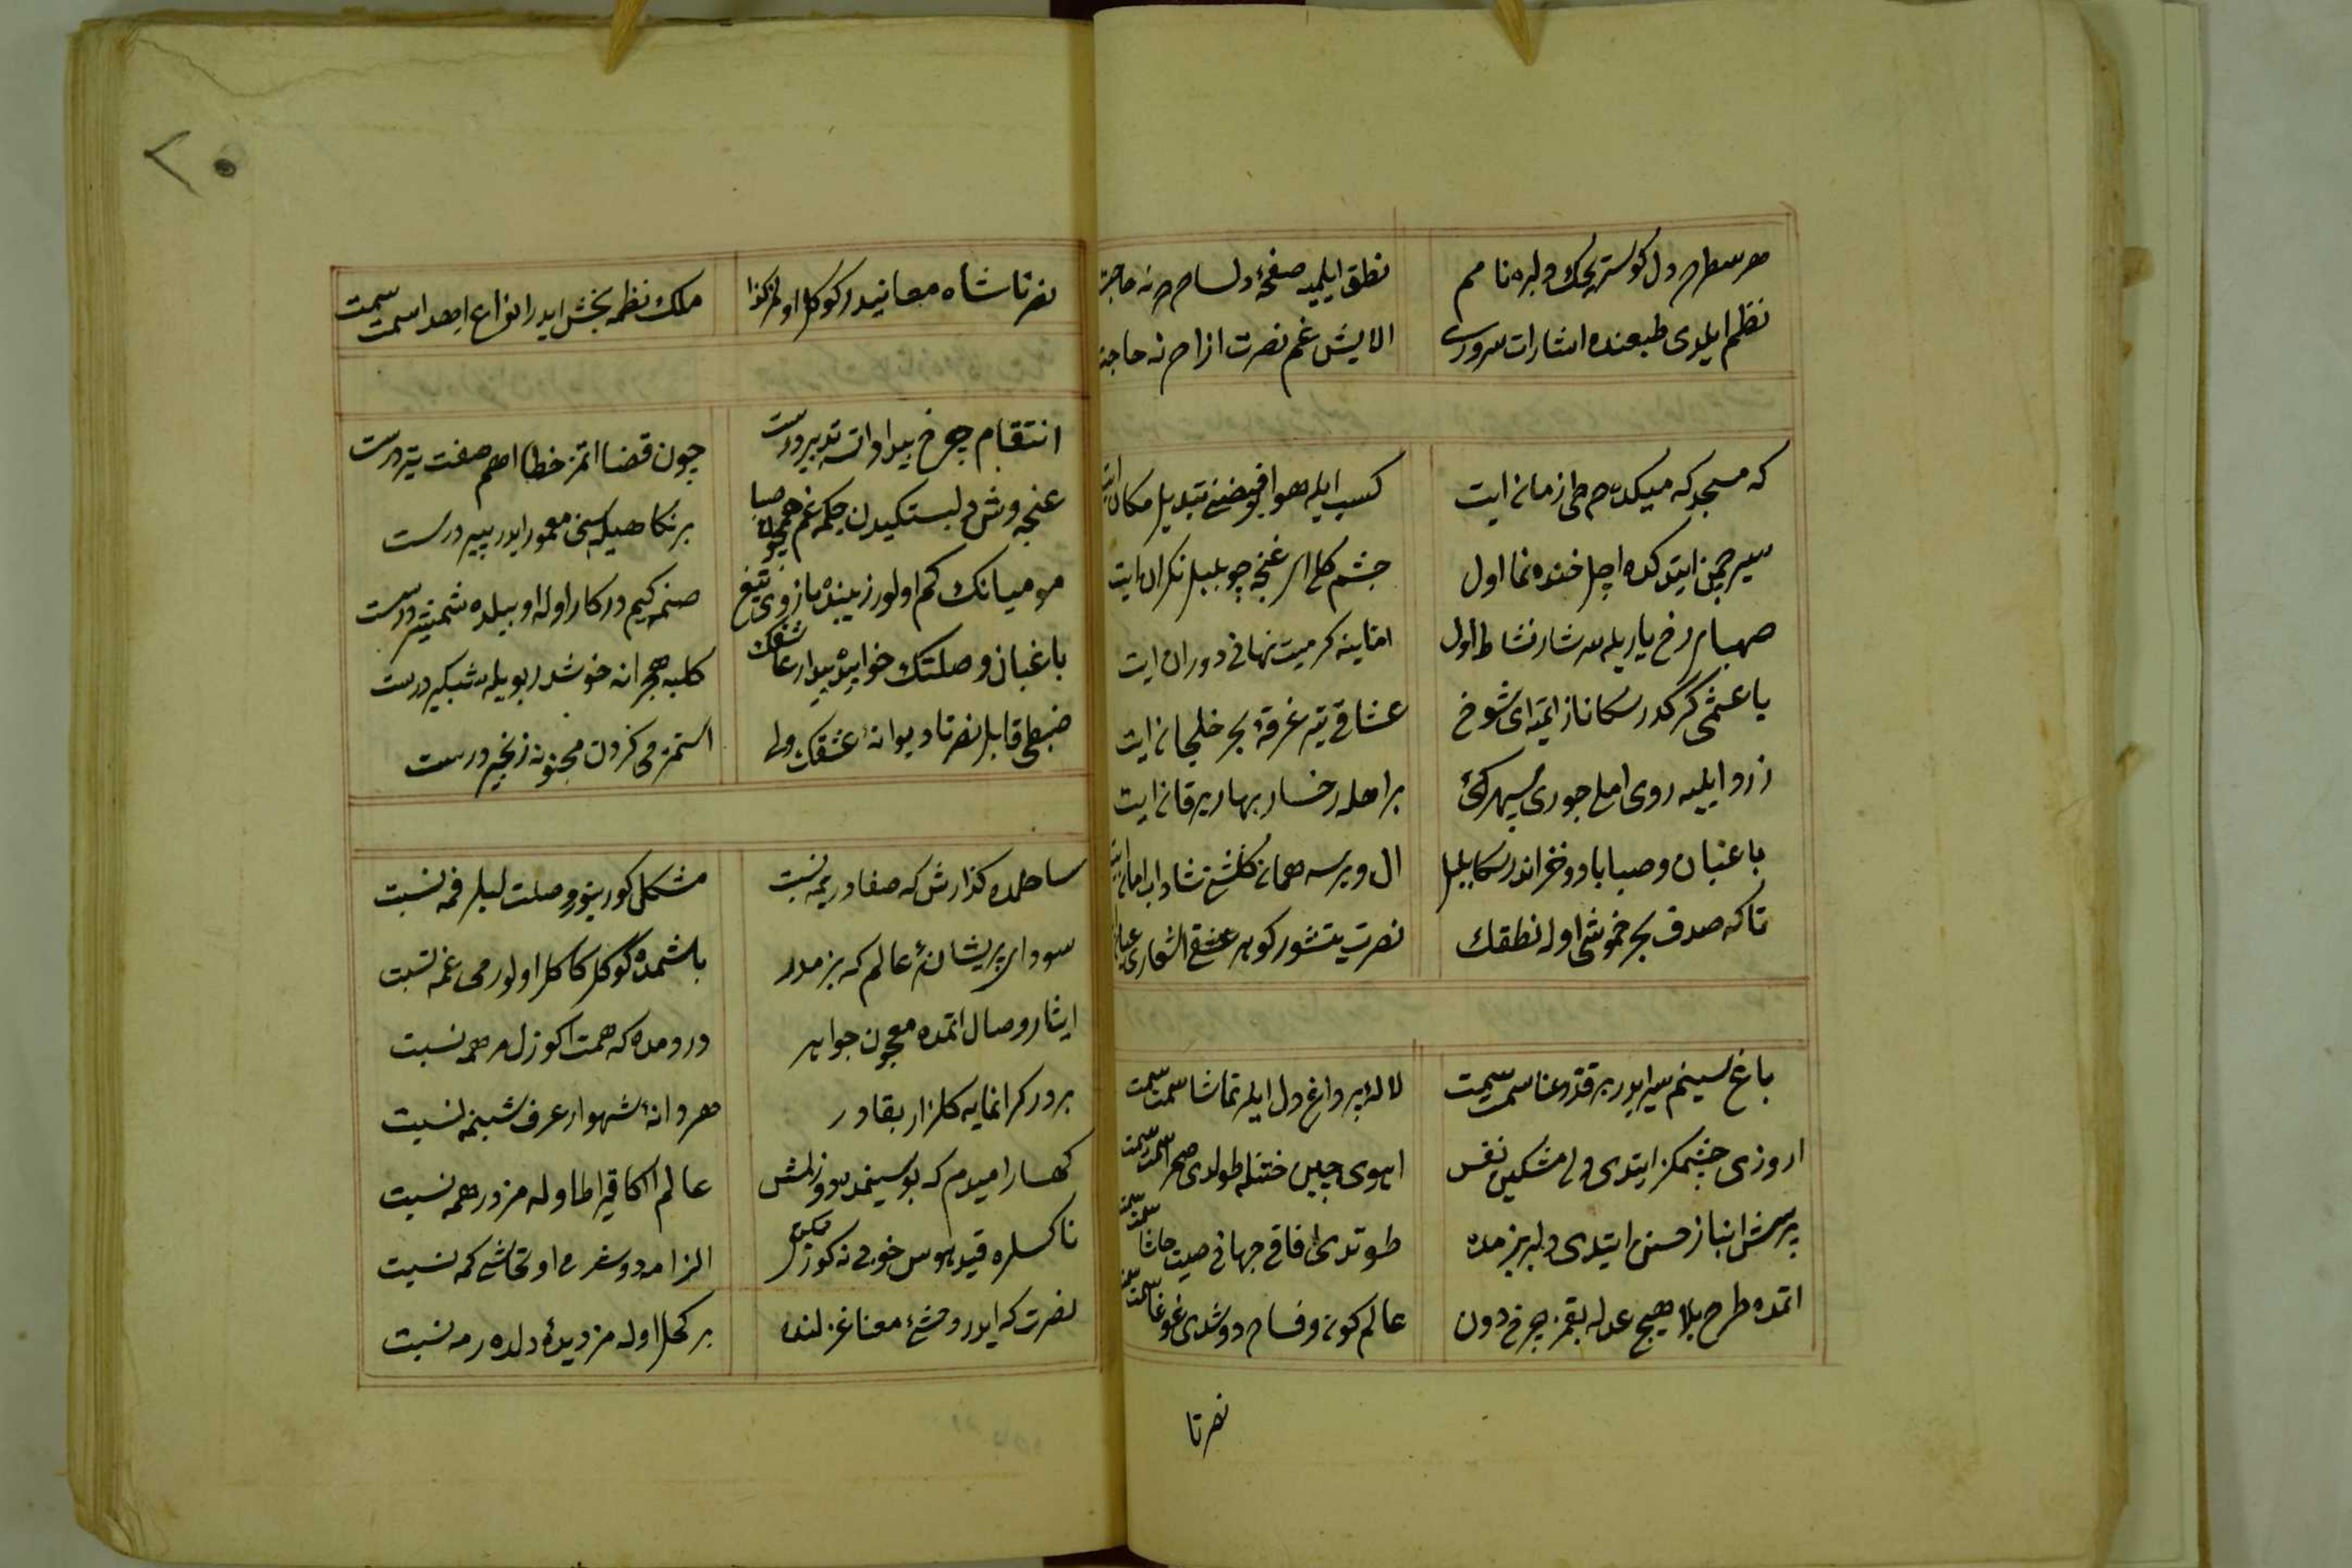 هر سطرم دل کوستریجك دلبره نامم نطق ایلمیه صفحهٔ دلسام نه حاجت
نظم ایلدی طبعنده اشارات سروری الایش غم نصرت ازام نه حاجت
که مسجد که میکده م طی زمان ایت کسب ایله هوا فیضنی تبدیل مکان ایت
سیر چمن ایتدکده اچل خنده نما اول چشم کلی ای غنچه چو بلبل نکران ایت
صهبای رخ یاریله سرشار نشاط اول کرمیت نهانی دوران ایت
کرکدر سکا ناز ایتمه ای شوخ عشاقی یتر غرقهٔ بحر خلجان ایت
زرد ایلیه روی املی جوری سپهرك رخسار بهار یرقان ایت
باغبان و صبا باد و خزاندر سکا بلبل ال ویرسه همان کلشن شاداب امان ایت
تاکه صدف بحر خموشی اوله نطقك نصرت یتشور کوهر عشقی اشعاری عیان ایت
باغ سینم سیر ایدر بر قد رعنا سمت سمت لاله لر داغ دل ایلر تماشا سمت سمت
اروزی چشمکز ایتدی دل مشکین نفس اهوی چین ختنله طولدی صحرا سمت سمت
پرسش انباز حسن ایتدی دلبر بزمده طوتدی افاقی جهانی صیت حاشا سمت سمت
اتمده طرح بلا هیچ عدله بقمز چرخ دون عالم کون و فسادم دوشدی غوغا سمت سمت
نصرتا
۲۰
نصرتا شاه معانیدر کوکل اولمز کدا ملك نظمه بخش ایدر انواع اهدا سمت سمت
انتقام چرخ بیداد اته تدبیر درست چون قضا اتمز خطا اهم صفت یتر درست
غنچه وش دلبستکیدن چکمه غم همچون صبا بر نکاهیله سنی معمور ایدر بیر درست
مو میانك کم اولور زیبنده بازوی تیغ صنمه کیم درکار اوله اوبیلده شمشیر درست
باغبان وصلتك خوابیده بیدار عاشقك کلبه هجرانه خوشدر بویله شبکیر درست
ضبطی قابل نصرتا دیوانهٔ عشقك ولی استمز می کردن مجنونه زنجیر درست
ساحلده کذارش که صفا در یمه نسبت مشکل کورینور وصلت لیلر فمه نسبت
سودای پریشانیٔ عالم که بزمدر باشمده کوکل کاکل اولور می غمه نسبت
ایثار وصال اتمده معجون جواهر دردمده که همت اکوزل مرهمه نسبت
بر در کرانمایه کلزار بقادر هر دانهٔ شهوار عرف شبنمه نسبت
کهسار امیدم که بو سینمده دوزلمش عالم اکا قیراط اوله مز درهمه نسبت
ناکسلره قید هوس خوبی نه کوزل الزامه دوشرمی او تحاشی کمه نسبت
نصرت که ایدر وحشیٔ معنا غزلنده بر کحل اوله مز دیدهٔ دلده رمه نسبت